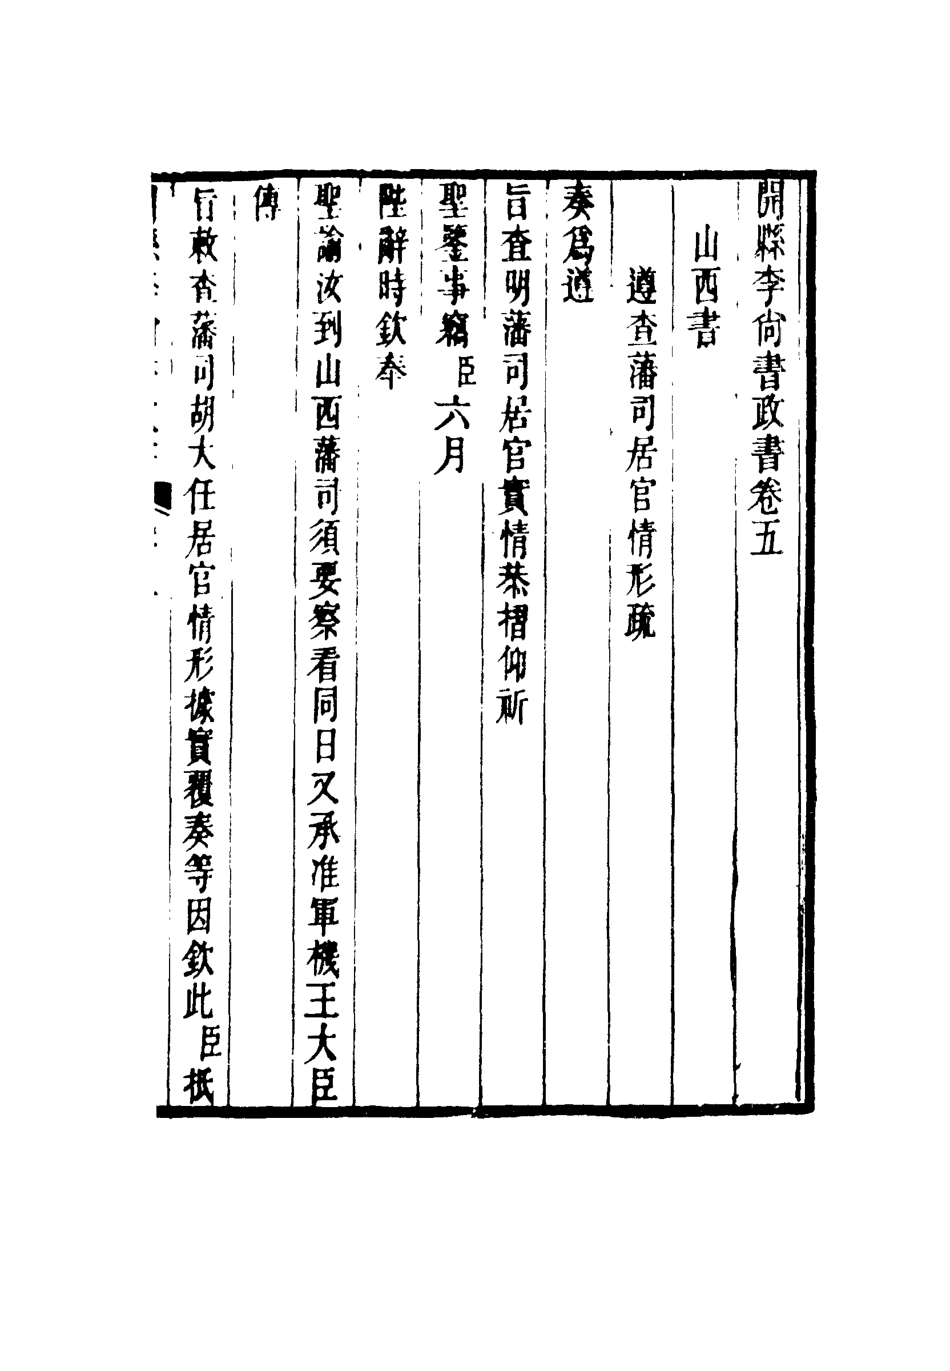 開縣李尙書政書卷五
山西書
遵查藩司居官情形疏
奏爲遵
旨查明藩司居官實情恭摺仰祈
聖鑒事竊臣六月
陛辭時欽奉
聖諭汝到山西藩司須要察看同日又承准軍機王大臣
傳
旨敕查藩司胡大任居官情形據實覆奏等因欽此臣祇